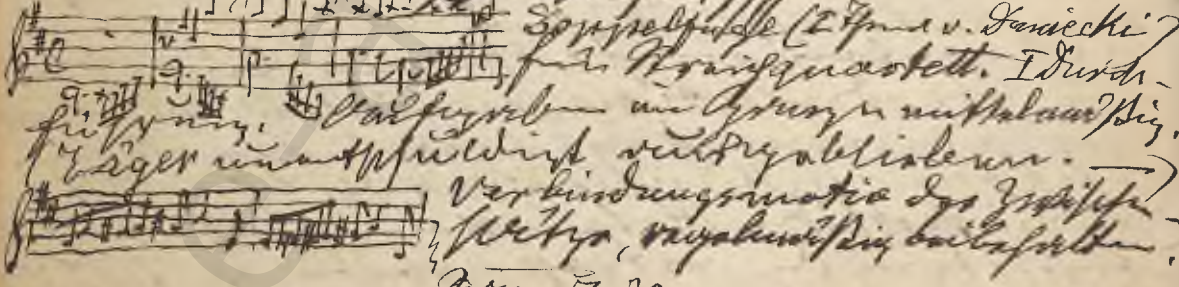 Doppelfuge (I Thema v. Daniecki)
für Streichquartett. I Durch-
führung. Aufgaben im Ganzen mittelmäßig.
Jäger unentschuldigt ausgeblieben.
Verbindungsmotiv der Zwischen
sätze, regelmäßig beibehalten.